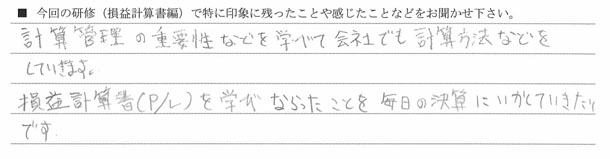 ■ 今回の研修（損益計算書編）で特に印象に残ったことや感じたことなどをお聞かせ下さい。
計算管理の重要性などを学びて会社でも計算方法などを
していきます。
損益計算書(P/L)を学びならったことを毎日の決算にいかしていきたい
です.